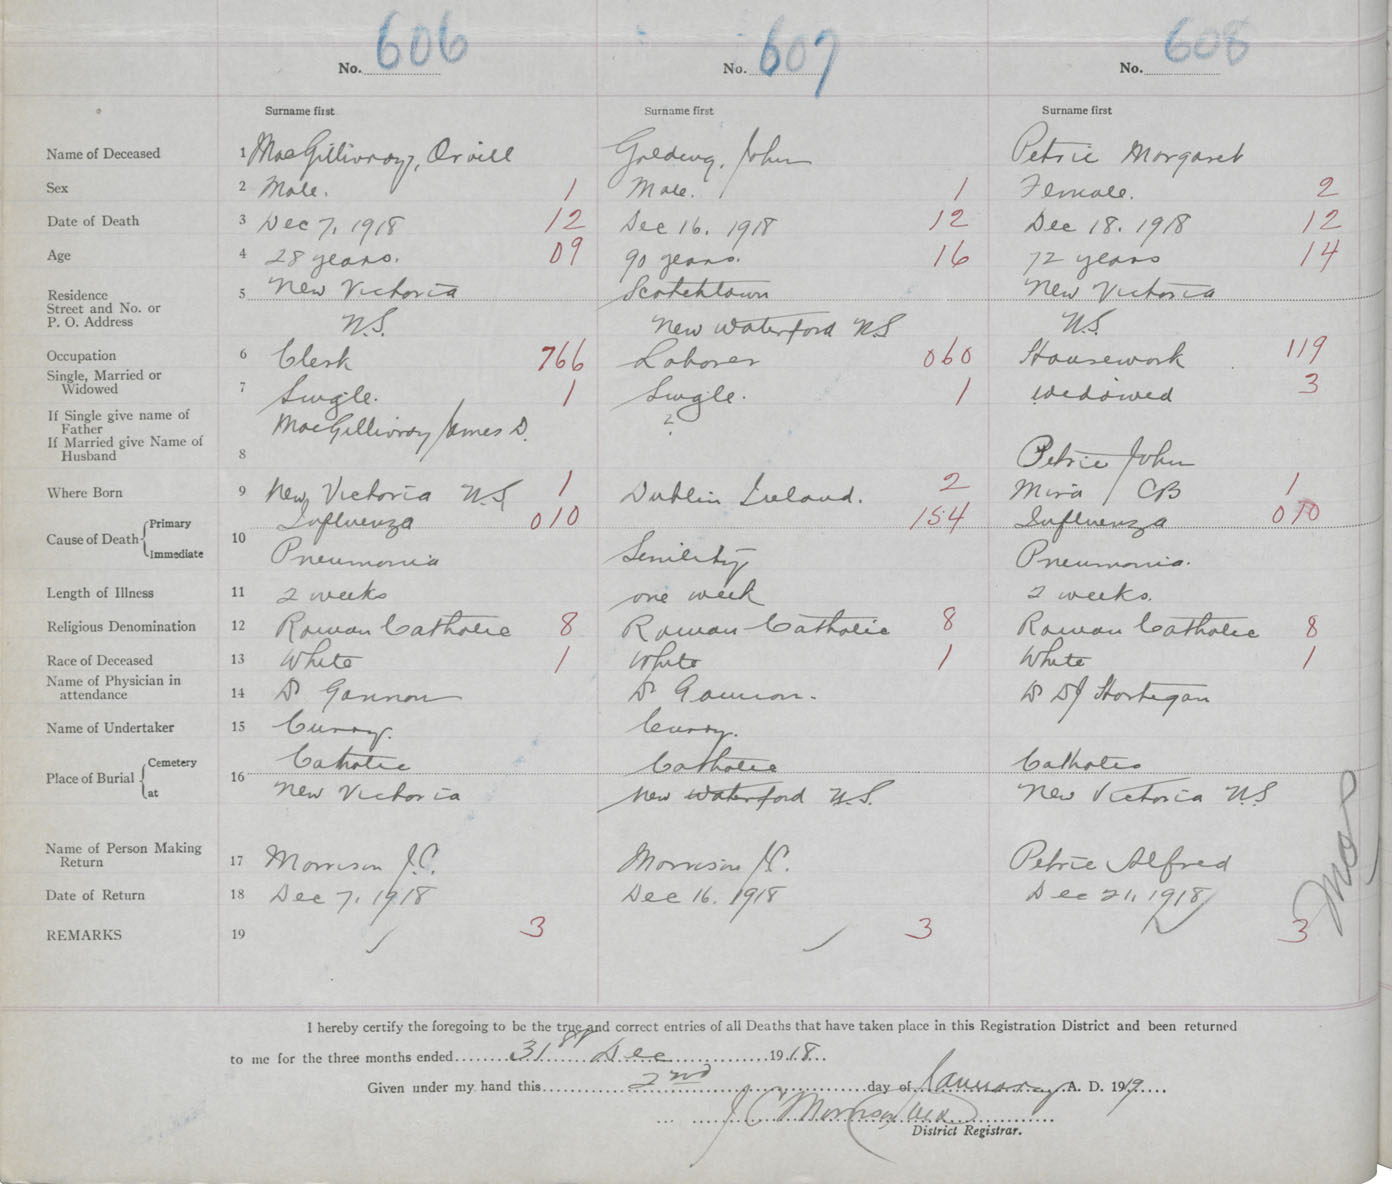 606 607 608
No. No. No.
Surname first Surname first Surname first
Name of Deceased 1 MacGillivray, Orvill Golding, John Petrie Margaret
Sex 2 Male. 1 Male. 1 Female. 2
Date of Death 3 Dec 7, 1918 12 Dec 16. 1918 12 Dec 18. 1918 12
Age 4 28 years. 09 90 years. 16 72 years 14
Residence 5 New Victoria Scotchtown New Victoria
Street and No. or
P. O. Address N.S. New Waterford N S N.S.
Occupation 6 Clerk 766 Laborer 060 Housework 119
Single, Married or
Widowed 7 Single. 1 Single. 1 widowed 3
If Single give name of
Father MacGillivray James D. ?
If Married give Name of
Husband 8 Petrie John
Where Born 9 New Victoria N.S 1 Dublin Ireland. 2 Mira CB 1
Cause of Death Primary 10 Influenza 010 154 Influenza 010
Immediate Pneumonia Senility Pneumonia.
Length of Illness 11 2 weeks one week 2 weeks.
Religious Denomination 12 Roman Catholic 8 Roman Catholic 8 Roman Catholic 8
Race of Deceased 13 White 1 White 1 White 1
Name of Physician in
attendance 14 Dr Gannon Dr Gannon. Dr DJ Hartegan
Name of Undertaker 15 Curry. Curry.
Place of Burial Cemetery 16 Catholic Catholic Catholic
at New Victoria New Waterford N.S. New Victoria N.S
Name of Person Making
Return 17 Morrison J.C. Morrison J.C. Petrie Alfred
Date of Return 18 Dec 7, 1918 Dec 16. 1918 Dec 21, 1918
REMARKS 19 3 3 3
I hereby certify the foregoing to be the true and correct entries of all Deaths that have taken place in this Registration District and been returned
to me for the three months ended 31st Dec 1918
Given under my hand this 2nd day of January A. D. 1919
J C Morrison
District Registrar.